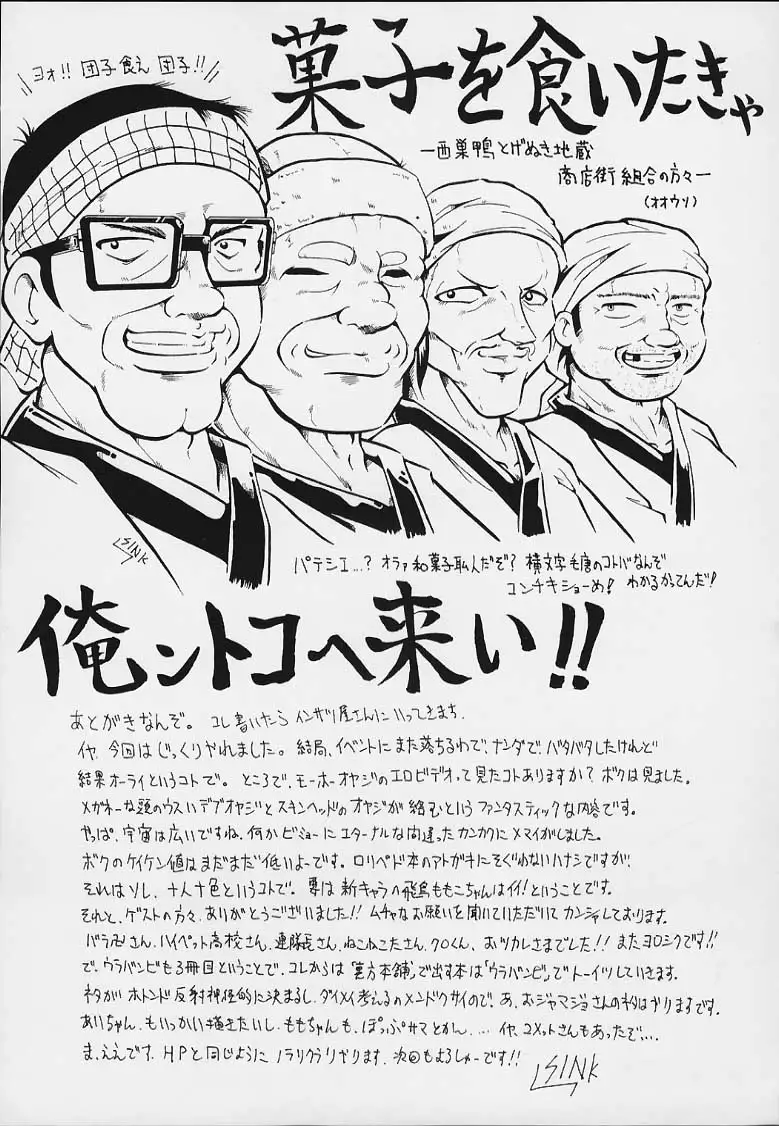 ヨォ!! 団子食え 団子!!
菓子を食いたきゃ
ー西巣鴨とげぬき地蔵
商店街組合の方々ー
(オオウソ)
SINK
パテシエ…? オラァ和菓子職人だぞ? 横文字毛唐のコトバなんぞ
コンチキショーめ! わかるかってんだ!
俺ントコへ来い!!
あとがきなんぞ。 コレ書いたらインサツ屋さんにいってきます。
イヤ、今回はじっくりやれました。結局、イベントにまた落ちるわで、ナンダで、バタバタしたけれど
結果オーライというコトで。ところで、モーホーオヤジのエロビデオって見たコトありますか? ボクは見ました。
メガネーな頭のウスいデブオヤジとスキンヘッドのオヤジが絡むというファンタスティックな内容です。
やっぱ、宇宙は広いですね、何かビミョーにエターナルな間違ったカンカクにメマイがしました。
ボクのケイケン値はまだまだ低いよーです。ロリペド本のアトガキにそぐわないハナシですが、
それはソレ、十人十色というコトで。要は新キャラの飛鳥ももこちゃんはイイ!ということです。
それと、ゲストの方々、ありがとうございました!! ムチャなお願いを聞いていただいてカンシャしております。
バラ卍さん、ハイペット高校さん、連隊長さん、ねこねこたさん、クロくん、おツカレさまでした!! またヨロシクです!!
で、ウラバンビも3冊目ということで、コレからは「裏方本舗」で出す本は「ウラバンビ」でトーイツしていきます。
ネタがホトンド反射神経的に決まるし、ダイメイ考えるのメンドクサイので。あ、おジャマジョさんのネタはやりますです。
あいちゃん、もいっかい描きたいし、ももちゃんも、ぽっぷサマとかん、… イヤ、コメットさんもあったぞ…
ま、ええです、HPと同じようにノラリクラリやります、次回もよろしゅーです!!
SINK